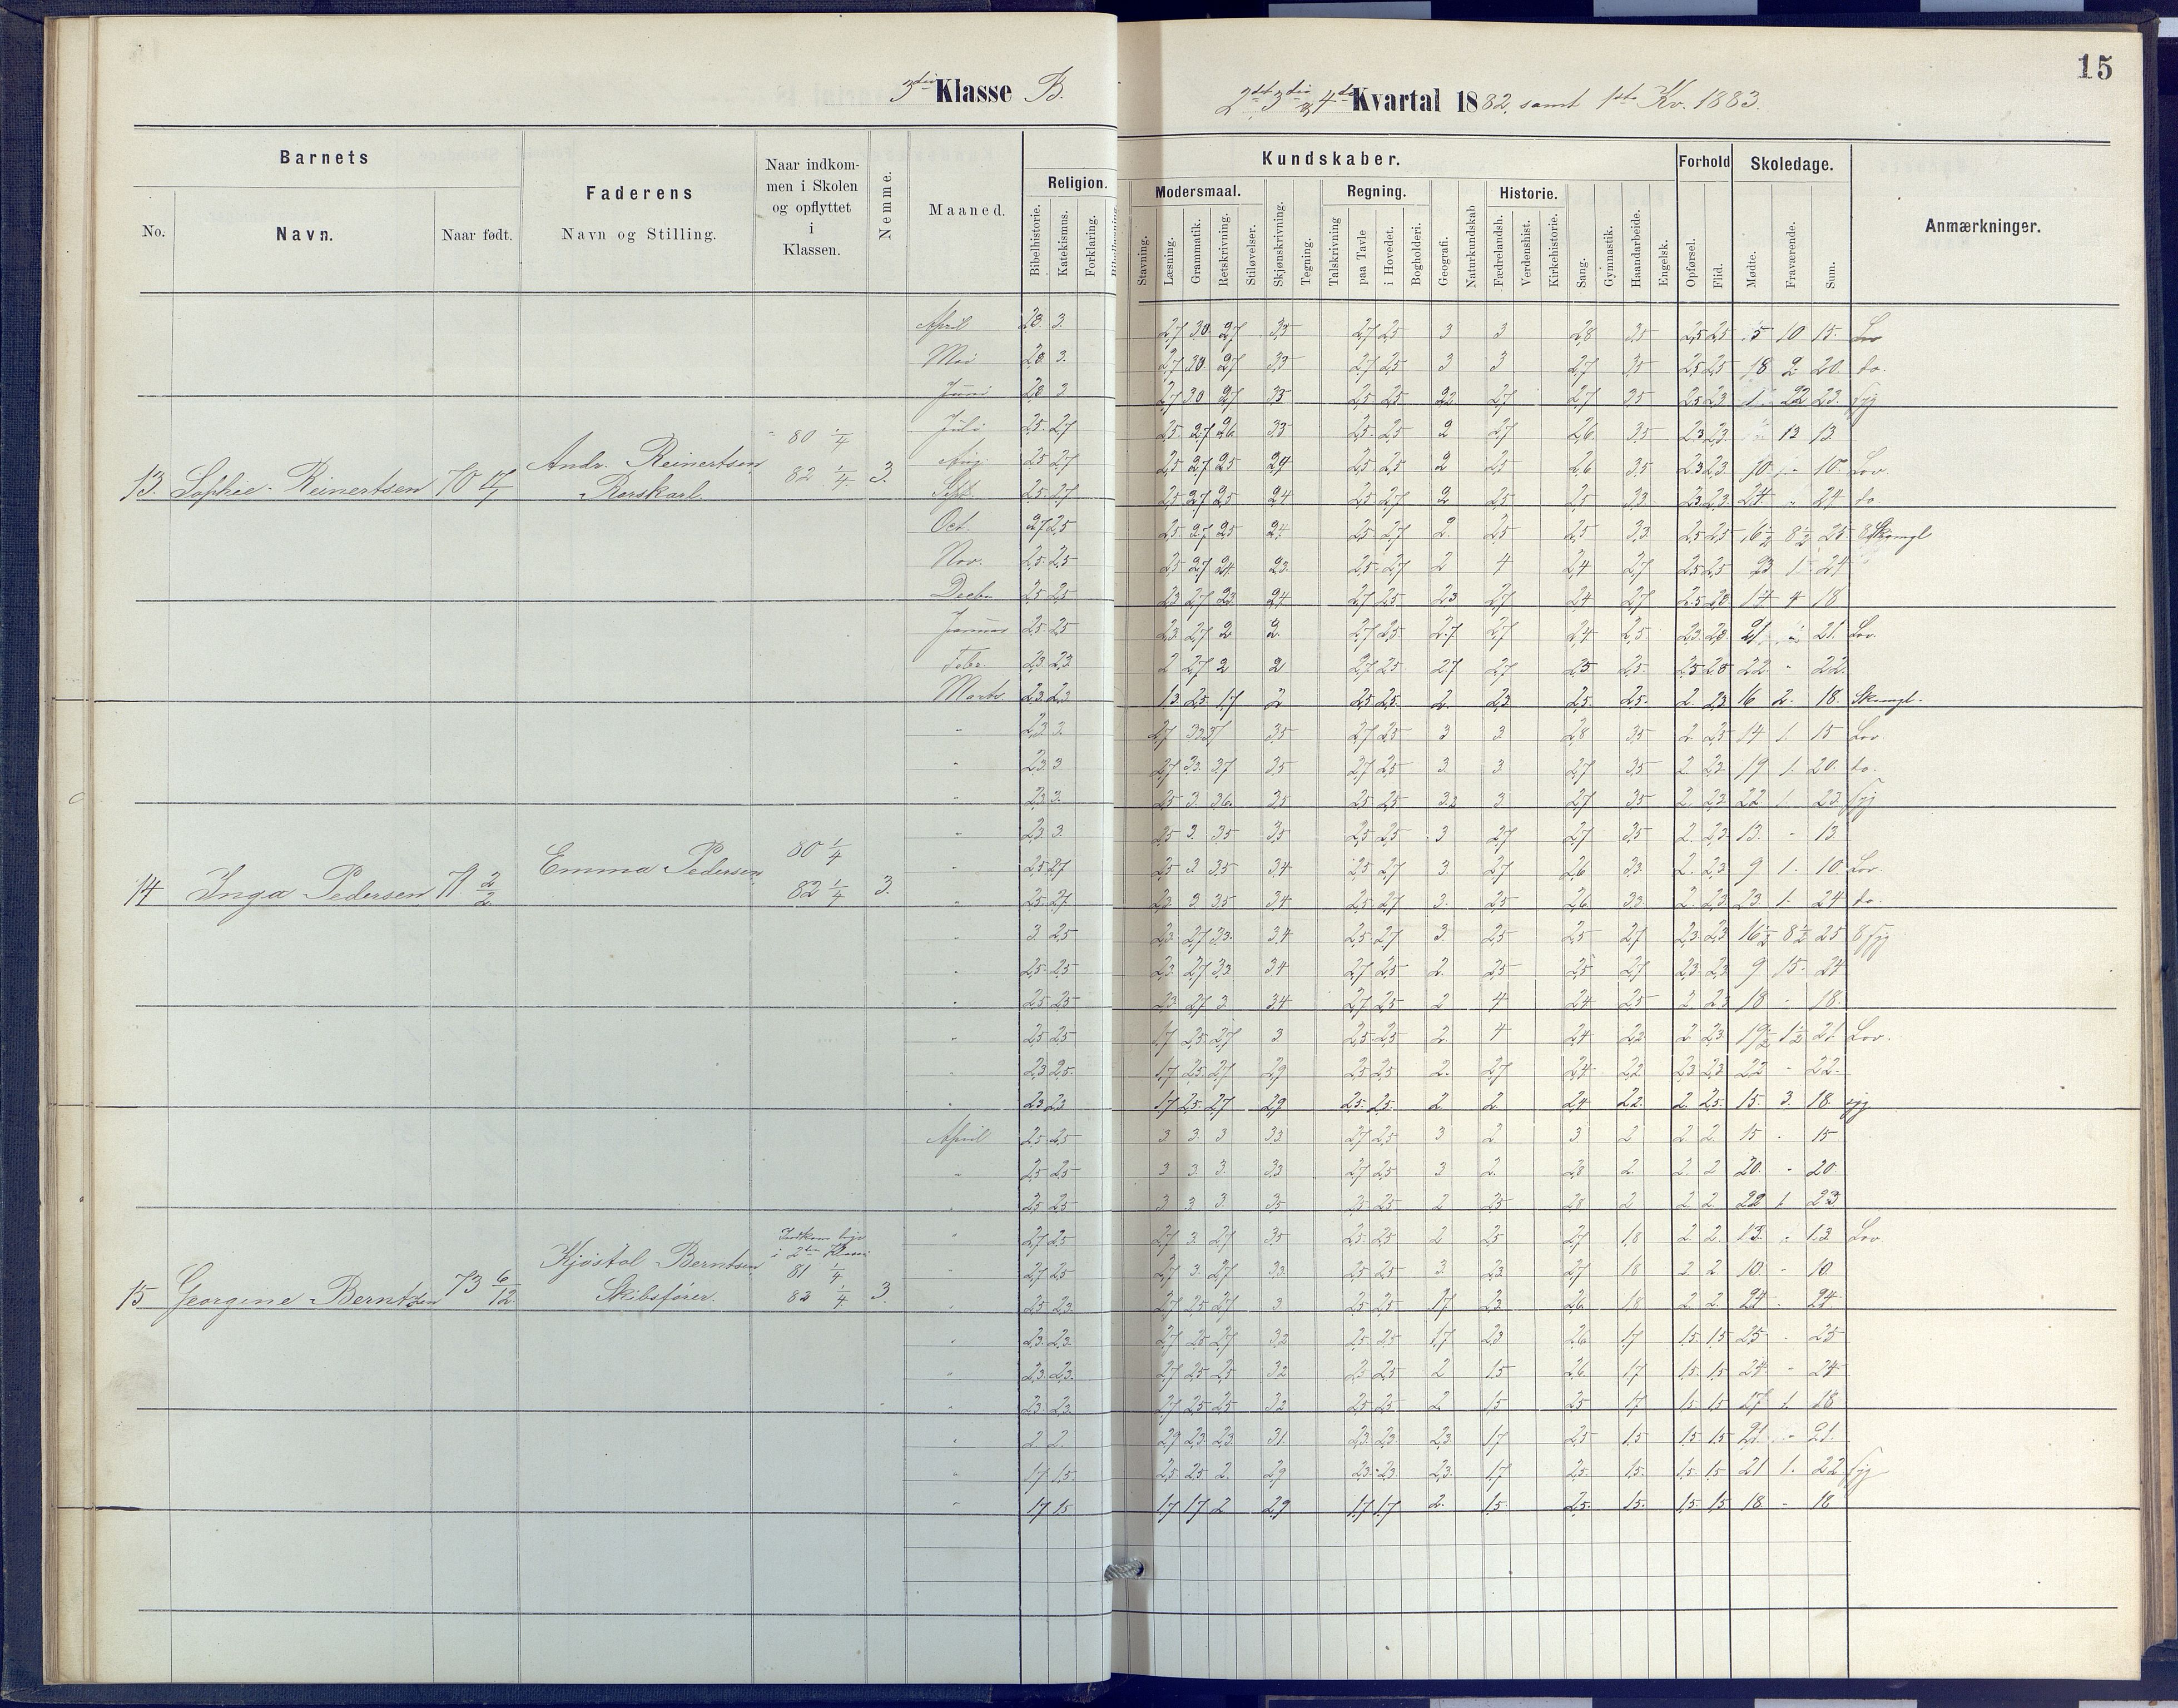 15
3die Klasse B.
2det 3die & 4de Kvartal 1882, samt 1ste Kv. 1883.
Barnets
Faderens
Navn og Stilling.
Naar indkommen i Skolen og opflyttet i Klassen.
Nemme.
Maaned.
No.
Navn.
Naar født.
Religion.
Bibelhistorie.
Katekismus.
Forklaring.
Kundskaber.
Modersmaal.
Stavning.
Læsning.
Grammatik.
Retskrivning.
Stiløvelser.
Skjønskrivning.
Tegning.
Regning.
Talskrivning
paa Tavle
i Hovedet.
Bogholderi.
Geografi.
Naturkundskab
Historie.
Fædrelandsh.
Verdenshist.
Kirkehistorie.
Sang.
Gymnastik.
Haandarbeide.
Engelsk.
Forhold
Opførsel.
Flid.
Skoledage.
Mødte.
Fraværende.
Sum.
Anmærkninger.
13. Sophie Reinertsen 70 17/1 Andr. Reinertsen Rorskarl. 80 1/4 82 1/4 3.
April 2,8 3. 2,7 3,0 2,7 3,5 2,7 2,5 3 3 2,8 3,5 2,5 2,5 5 10 15. Lov
Mai 2,8 3. 2,7 3,0 2,7 3,5 2,7 2,5 3 3 2,7 3,5 2,5 2,5 18 2 20. do.
Juni 2,8 3 2,7 3,0 2,7 3,5 2,5 2,5 2,2 2,7 2,7 3,5 2,5 2,3 1 22 23. syg
Juli 2,5 2,7 2,5 2,7 2,6 3,5 2,5 2,5 2 2,7 2,6 3,5 2,3 2,3 13 13.
Aug. 2,5 2,7 2,5 2,7 2,5 2,4 2,5 2,5 2 2,5 2,6 3,5 2,3 2,3 10 " 10. Lov.
Sept. 2,5 2,7 2,5 2,7 2,5 2,4 2,5 2,7 2 2,5 2,5 3,3 2,3 2,3 24 " 24 do
Oct. 2,7 2,5 2,5 2,7 2,5 2,4 2,5 2,7 2. 2,5 2,5 3,3. 2,5 2,5 16 1/2 8 1/2 25 8 Skomgl
Nov. 2,5 2,5 2,5 2,7 2,4 2,3. 2,5 2,7 2 4 2,4 2,7 2,5 2,5 23 1 24
Decbr 2,5 2,5 2,3 2,7 2,3 2,4 2,7 2,5 2,3 2,7 2,4 2,7 2,5 2,8 14 4 18
Januar 2,5 2,5 2,3 2,7 2 2. 2,7 2,5 2,7 2,7 2,4 2,5 2,3 2,8 21 " 21. Lov.
Febr. 2,3 2,3 2 2,7 2 2 2,7 2,5 2,7 2,7 2,5 2,5 2,5 2,8 22 " 22.
Marts 2,3 2,3 1,3 2,5 1,7 2 2,5 2,5 2. 2,3 2,5 2,5 2. 2,3 16 2. 18. Skomgl.
14 Inga Pedersen 71 2/2 Emma Pedersen 80 1/4 82 1/4 3.
" 2,3 3. 2,7 3,3 3,7 3,5 2,7 2,5 3 3. 2,8 3,5 2 2,5 14 1. 15 Lov.
" 2,3 3 2,7 3,3 3,7 3,5 2,7 2,5 3. 3 2,7 3,5 2. 2,3 19 1. 20. do.
" 2,3 3. 2,5 3. 3,6 3,5 2,5 2,5 3,2 3. 2,7 3,5 2. 2,3 22 1. 23 syg
" 2,3 3. 2,5 3. 3,5 3,5 2,5 2,5 3 2,7 2,7 3,5 2. 2,3 13. " 13.
" 2,5 2,7 2,5 3 3,5 3,4 2,5 2,7 3. 2,7 2,6 3,3. 2. 2,3 9 1. 10. Lov.
" 2,5 2,7 2,3 3. 3,5 3,4 2,5 2,7 3. 2,5 2,6 3,3. 2. 2,3. 23. 1. 24 do.
" 3. 2,5 2,3 2,7 3,3. 3,4 2,5 2,7 3. 2,5 2,5 2,7 2,3. 2,3 16 1/2 8 1/2 25 8 syg
" 2,5 2,5 2,3 2,7 3,3 3,4 2,7 2,5 2. 2,5 2,5 2,7 2,3 2,3 9 15 24
" 2,5 2,5 2,3 2,7 3. 3,4 2,7 2,5 2 4 2,4 2,5 2 2,3 18 " 18.
" 2,5 2,5 1,7 2,5 2,7 3 2,5 2,5 2. 4 2,4 2,2 2 2,3 19 1/2 1 1/2 21 Lov.
" 2,3 2,5 1,7 2,5 2,7 2,9 2,5 2,5 2. 2,7 2,4 2,2 2,3 2,3 22 " 22.
" 2,3 2,3 1,7 2,5 2,7 2,9 2,5 2,5 2. 2. 2,4 2,2. 2. 2,5 15. 3. 18. syg
15 Georgine Berntzen 73 6/12. Kjøstol Berntsen, Skibsfører. Indkom lige i 2den Klasse 81 1/4 82 1/4 3.
April 2,5 2,5 3 3. 3 3,3 2,7 2,5 3 2 3. 2 2 2 15 " 15
" 2,5 2,5 3 3. 3. 3,3 2,7 2,5 3 2. 2,8 2. 2 2 20. " 20.
" 2,5 2,5 3 3. 3. 3,5 2,5 2,5 2 2,5 2,8 2 2. 2. 22 1 23
" 2,7 2,5 2,7 3. 2,7 3,5 2,5 2,5 2 2,5 2,7 1,8 2 2. 13. " 13 Lov
" 2,7 2,5 2,7 3. 2,7 3,3 2,5 2,5 3. 2,3 2,7 1,8 2 2. 10. " 10.
" 2,5 2,3. 2,7 2,5 2,7 3 2,5 2,5 1,7 2,3. 2,6 1,8 2. 2. 24 " 24.
" 2,3. 2,3. 2,7 2,5 2,7 3,2 2,5 2,5 1,7 2,3 2,6 1,7 1,5 1,5 25 " 25
" 2,3 2,3. 2,7 2,5 2,5 3,2 2,3 2,5 2 1,5 2,6. 1,7 1,5 1,5 24 " 24
" 2,3 2,3. 2,7 2,5 2,5 3,2 2,5 2,5 2 1,5 2,5 1,7 1,5 1,5 17 1. 18
" 2 2. 2,7 2,3. 2,3. 3,1. 2,3. 2,3. 2,3. 1,7 2,5 1,5 1,5 1,5 21. " 21.
" 1,7 1,5 2,5 2,5 2. 2,9 2,3 2,3 2,3. 1,7 2,5. 1,5. 1,5 1,5 21 1. 22 syg
" 1,7 1,5 1,7 1,7 2 2,9 1,7 1,7 2. 1,5. 2,5. 1,5. 1,5 1,5 18 " 18